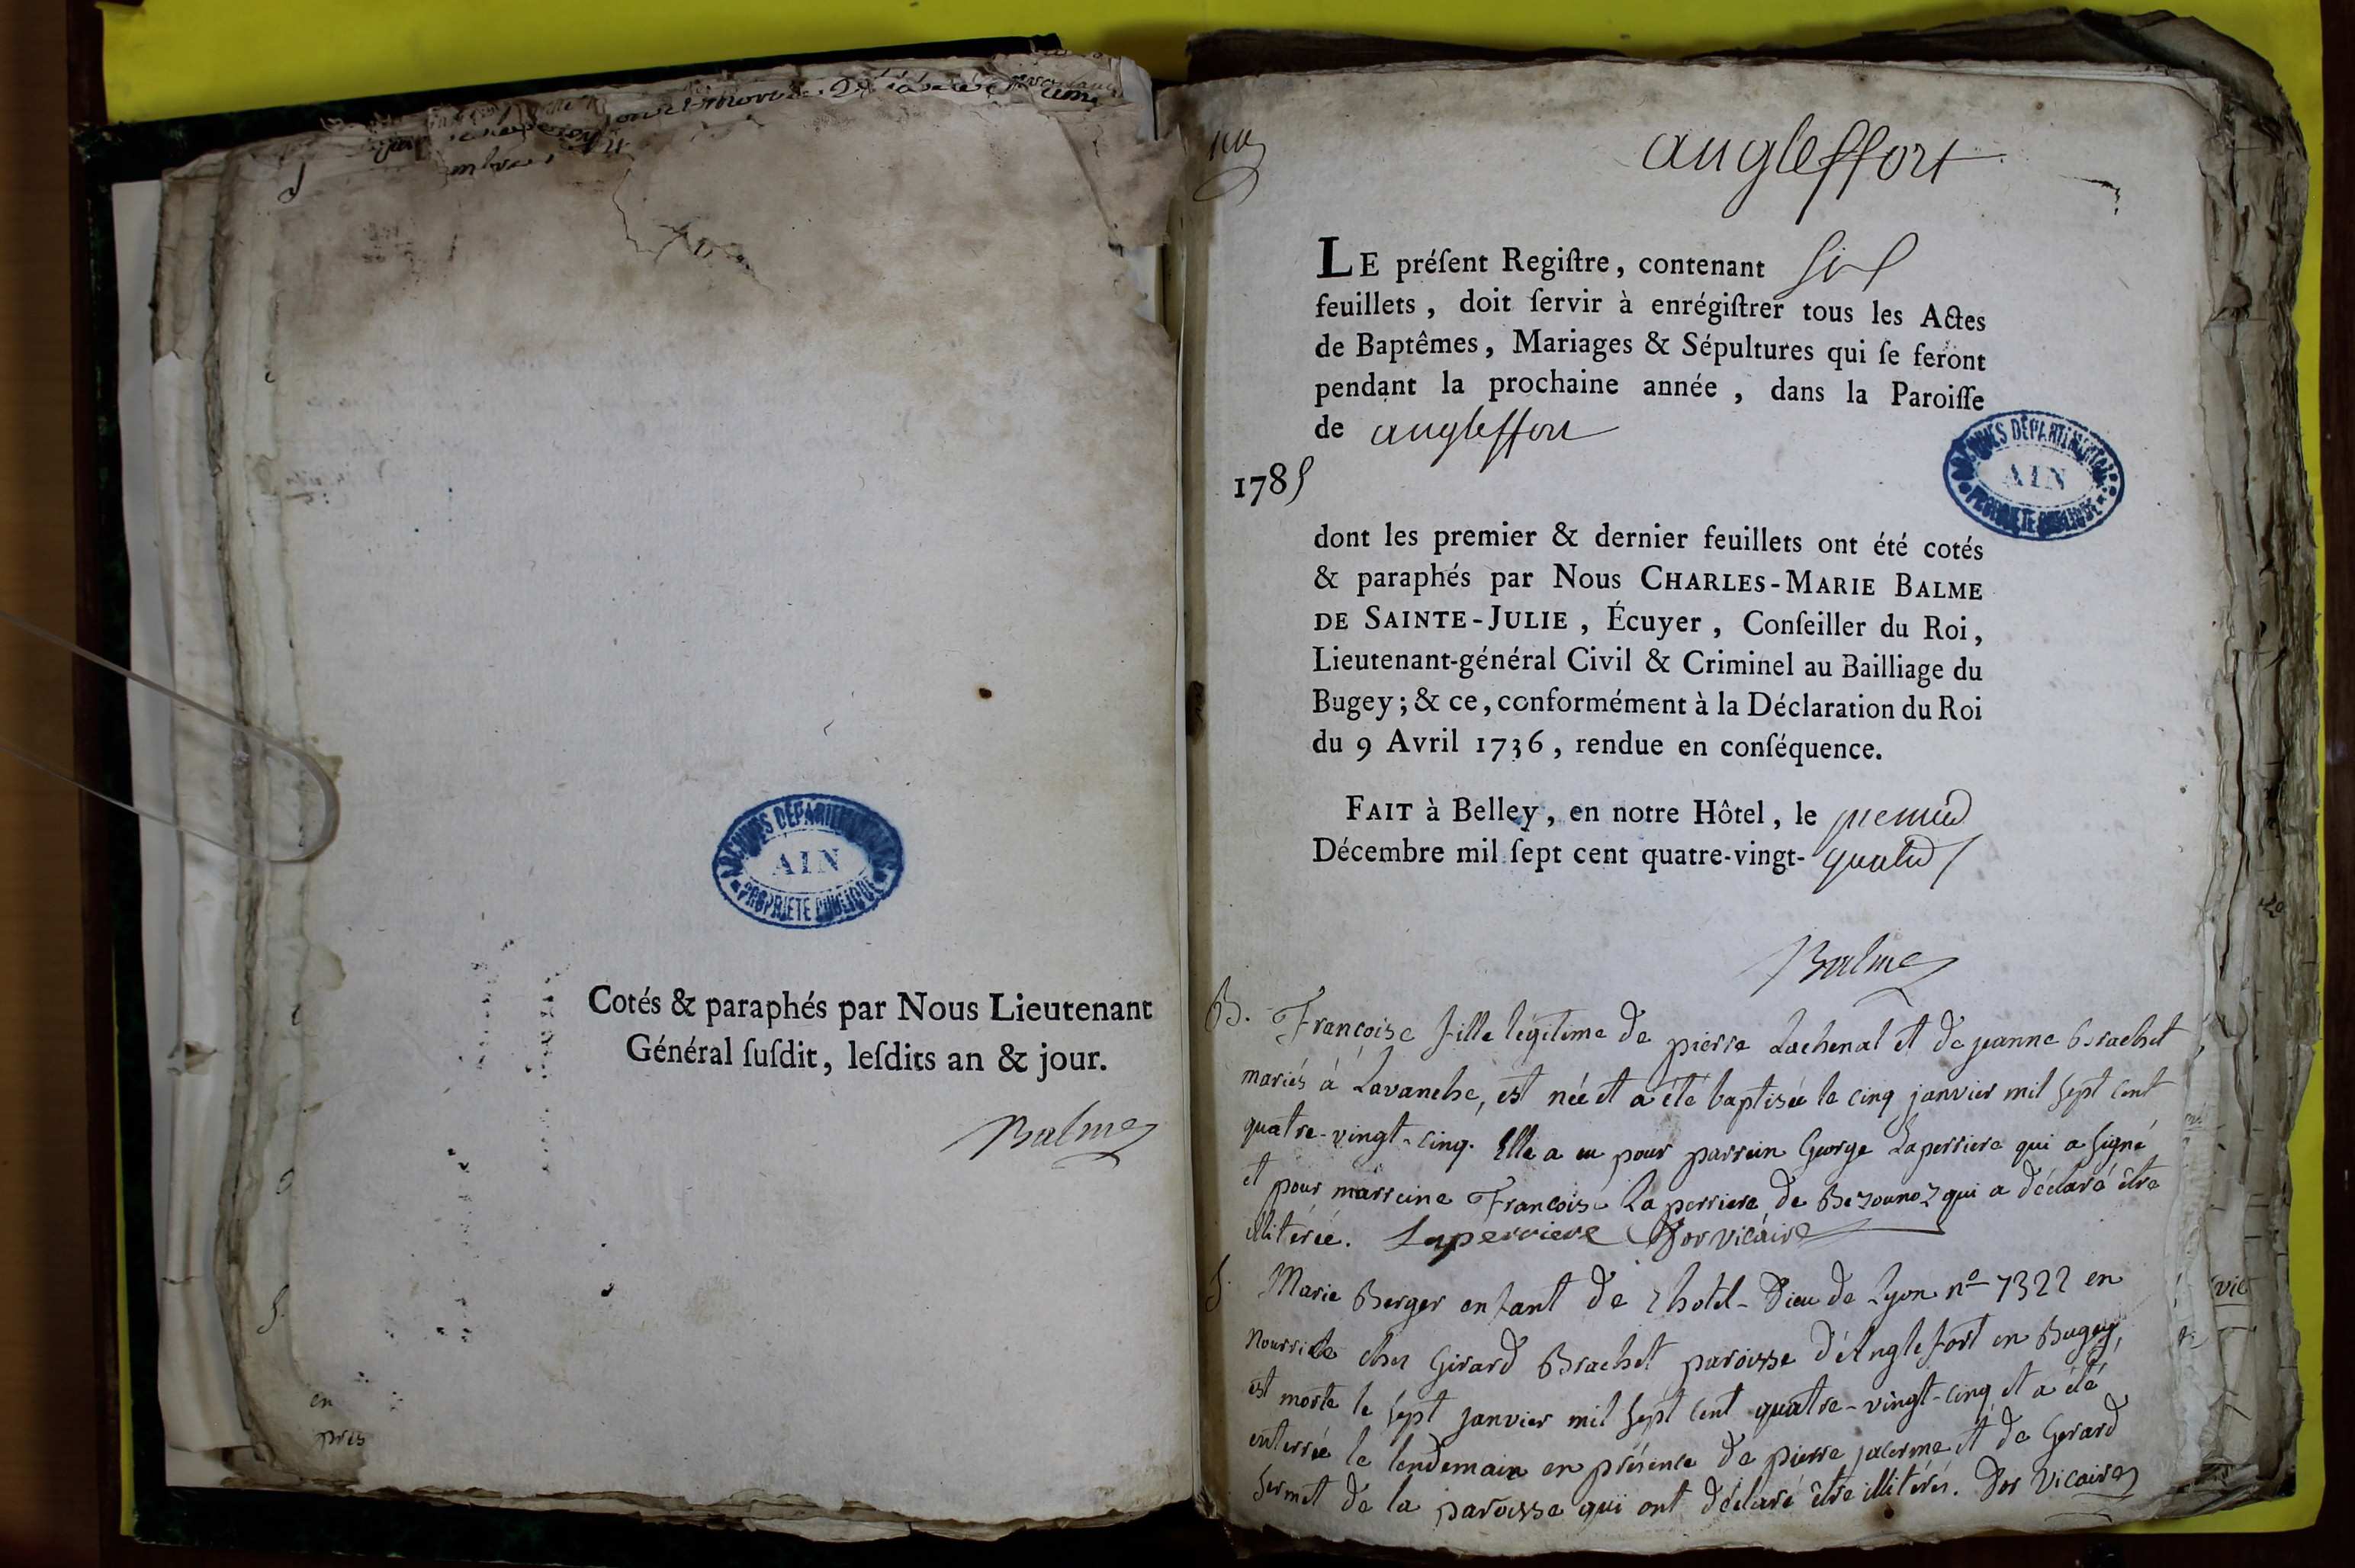 Cotés & paraphés par Nous Lieutenant
Général ſuſdit, leſdits an & jour.
Balme
ARCHIVES DÉPARTEMENTALES
AIN
PROPRIÉTÉ PUBLIQUE
en
pris
angleffort
LE préſent Regiſtre, contenant six
feuillets, doit ſervir à enrégiſtrer tous les Actes
de Baptêmes, Mariages & Sépultures qui ſe feront
pendant la prochaine année, dans la Paroiſſe
de angleffort
1785
ARCHIVES DÉPARTEMENTALES
AIN
PROPRIÉTÉ PUBLIQUE
dont les premier & dernier feuillets ont été cotés
& paraphés par Nous CHARLES-MARIE BALME
DE SAINTE-JULIE, Écuyer, Conſeiller du Roi,
Lieutenant-général Civil & Criminel au Bailliage du
Bugey; & ce, conformément à la Déclaration du Roi
du 9 Avril 1736, rendue en conſéquence.
FAIT à Belley, en notre Hôtel, le premier
Décembre mil ſept cent quatre-vingt-quatre
Balme
B. Francoise fille légitime de pierre Lachenal et de jeanne Brachet
mariés à Lavanche, est née et a été baptisée le cinq janvier mil sept cent
quatre-vingt-cinq. Elle a eu pour parrein George Laperriere qui a signé
et pour marreine Francoise La perriere de Bezounoz qui a déclaré être
illitérée. Laperriere Dor vicaire
S. Marie Berger enfant de l'hotel-Dieu de Lyon n° 7322 en
Nourrice chez Girard Brachet paroisse d'Anglefort en Bugey,
est morte le sept janvier mil sept cent quatre-vingt-cinq et a été
enterrée le lendemain en présence de pierre jacerme et de Gerard
Sermet de la paroisse qui ont déclaré être illitérés. Dor Vicaire